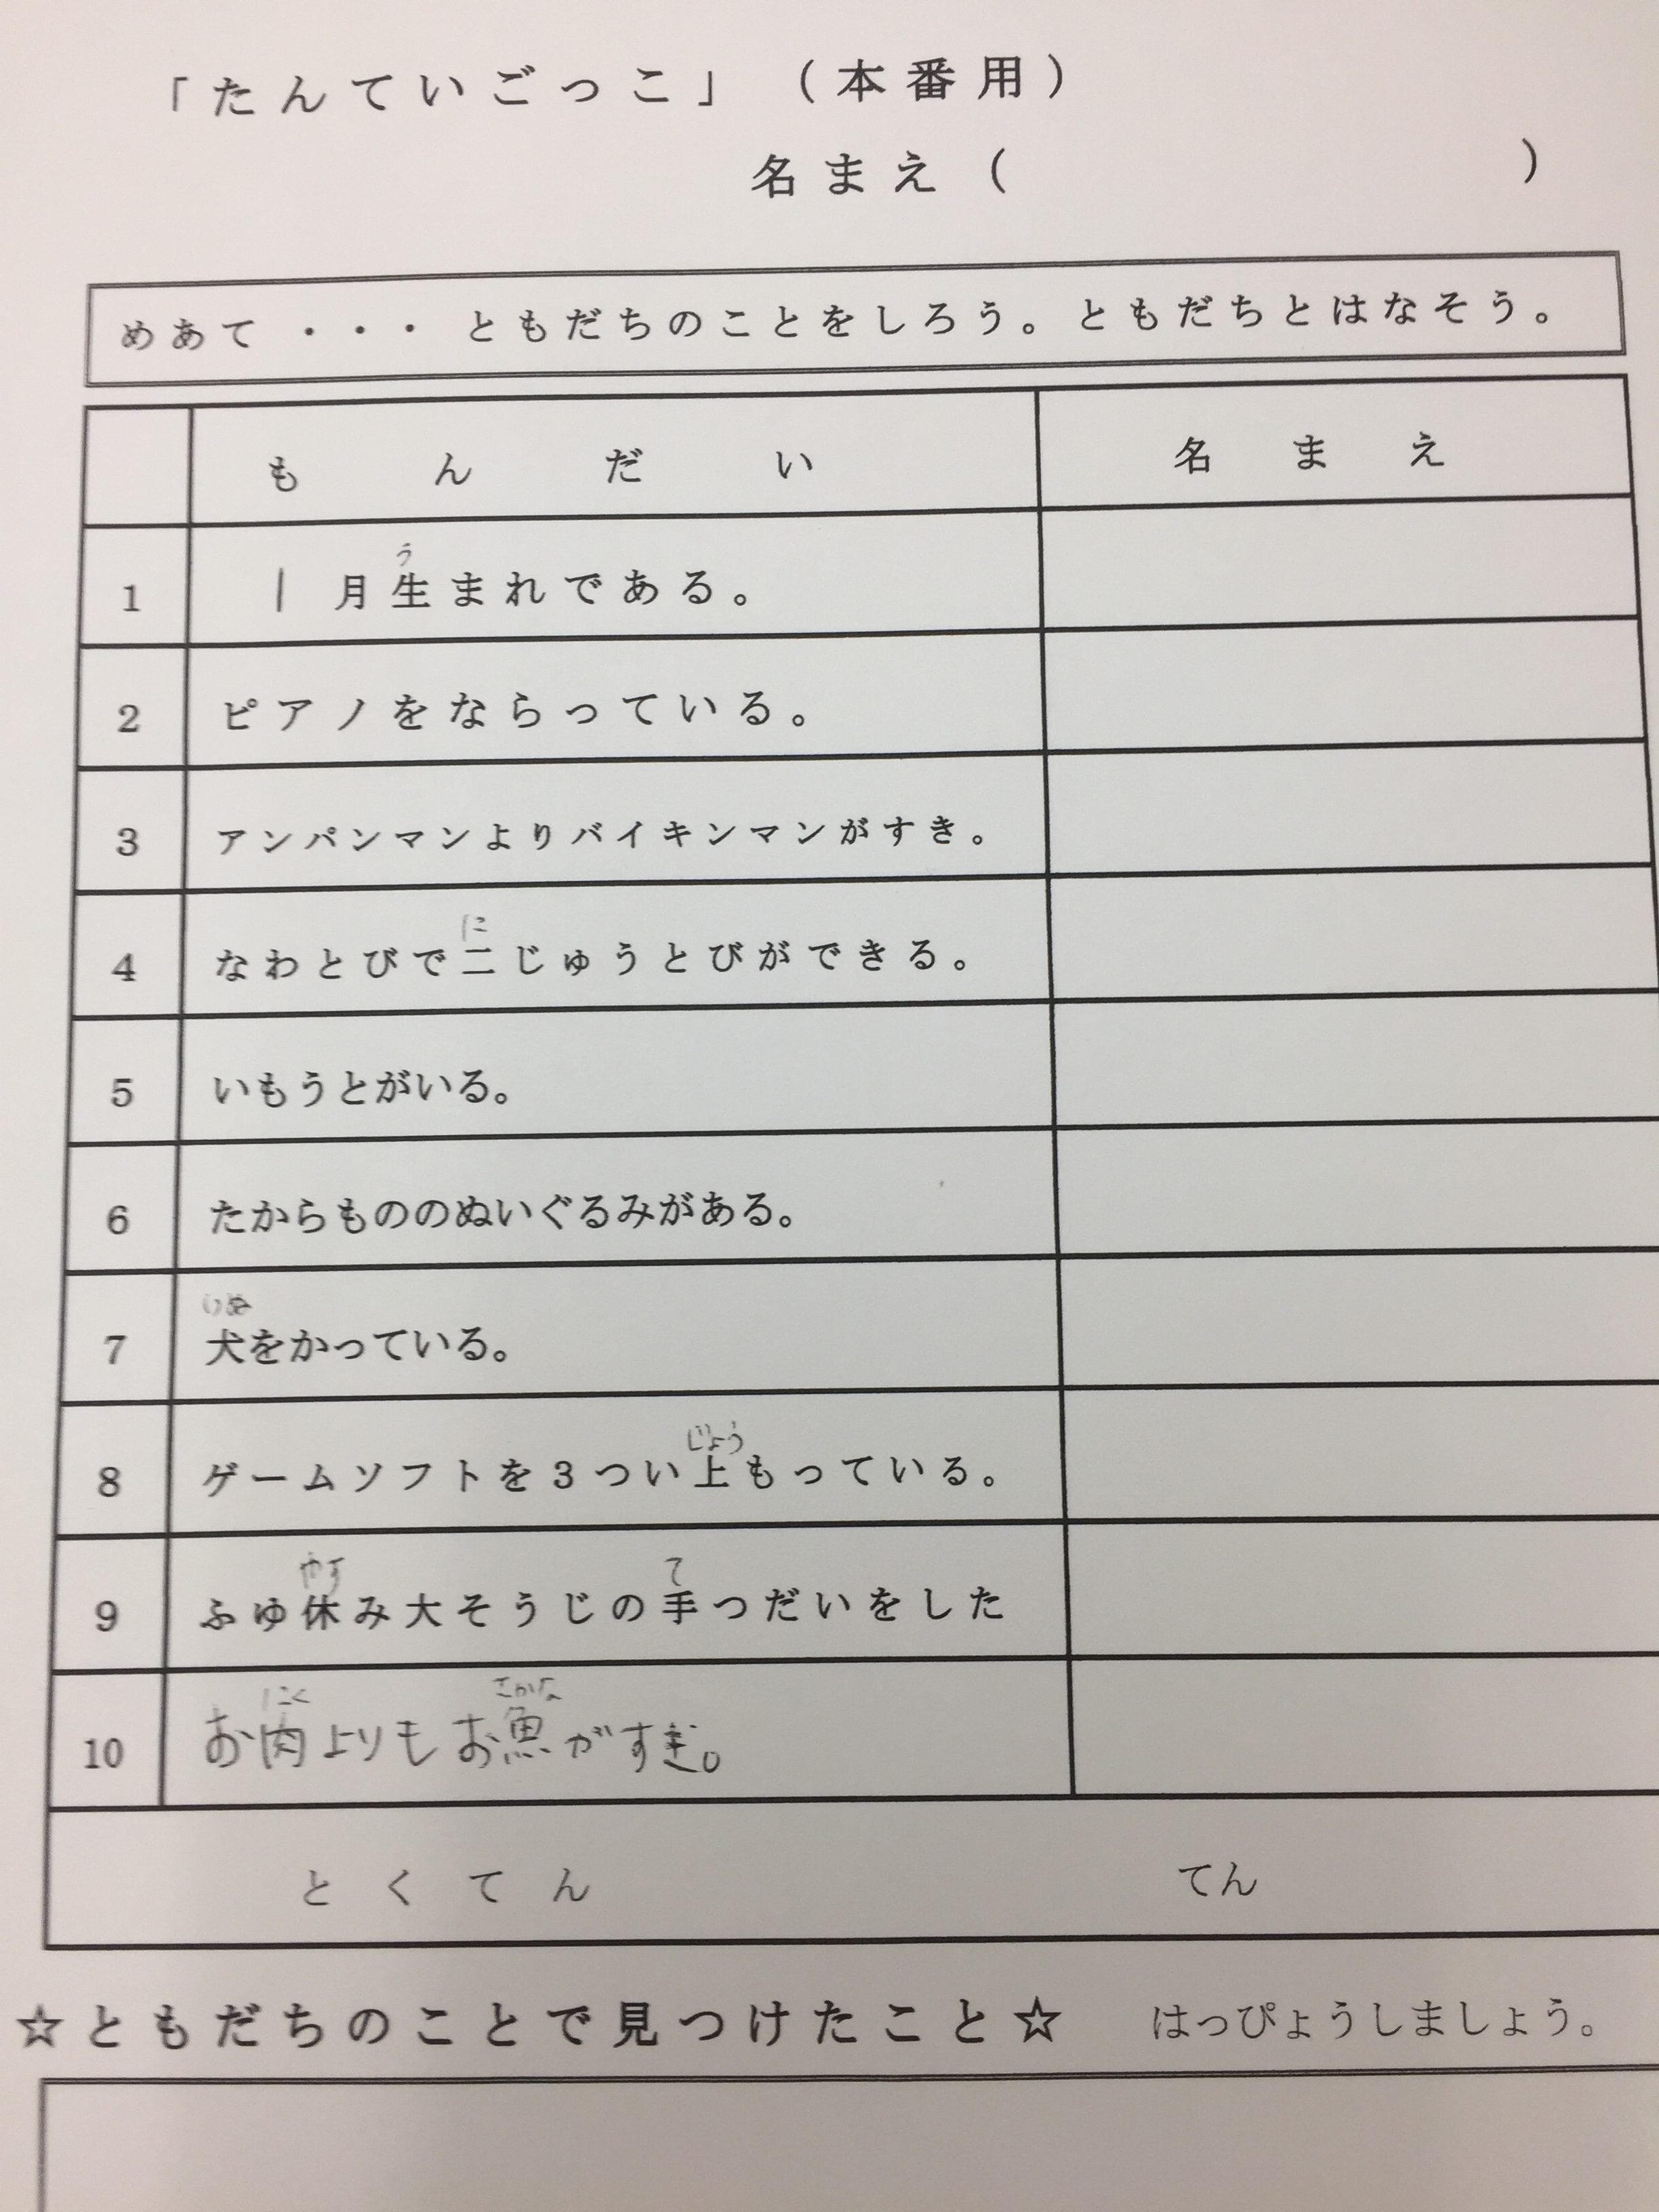 「たんていごっこ」（本番用）
名まえ（　　　　　　　）
めあて・・・ともだちのことをしろう。ともだちとはなそう。
もんだい 名まえ
う
1 1月生まれである。
2 ピアノをならっている。
3 アンパンマンよりバイキンマンがすき。
に
4 なわとびで二じゅうとびができる。
5 いもうとがいる。
6 たからもののぬいぐるみがある。
いぬ
7 犬をかっている。
じょう
8 ゲームソフトを3つい上もっている。
やす て
9 ふゆ休み大そうじの手つだいをした
にく さかな
10 お肉よりもお魚がすき。
とくてん てん
☆ともだちのことで見つけたこと☆ はっぴょうしましょう。